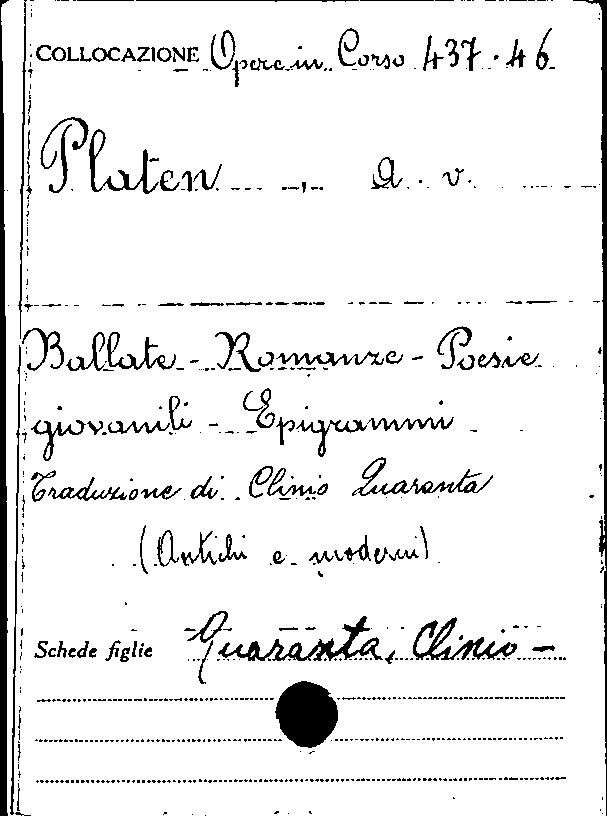 COLLOCAZIONE Opere in Corso 437.46
Platen, A. v.
Ballate - Romanze - Poesie
giovanili - Epigrammi
Traduzione di Clinio Quaranta
(Antichi e moderni)
Schede figlie Quaranta, Clinio -